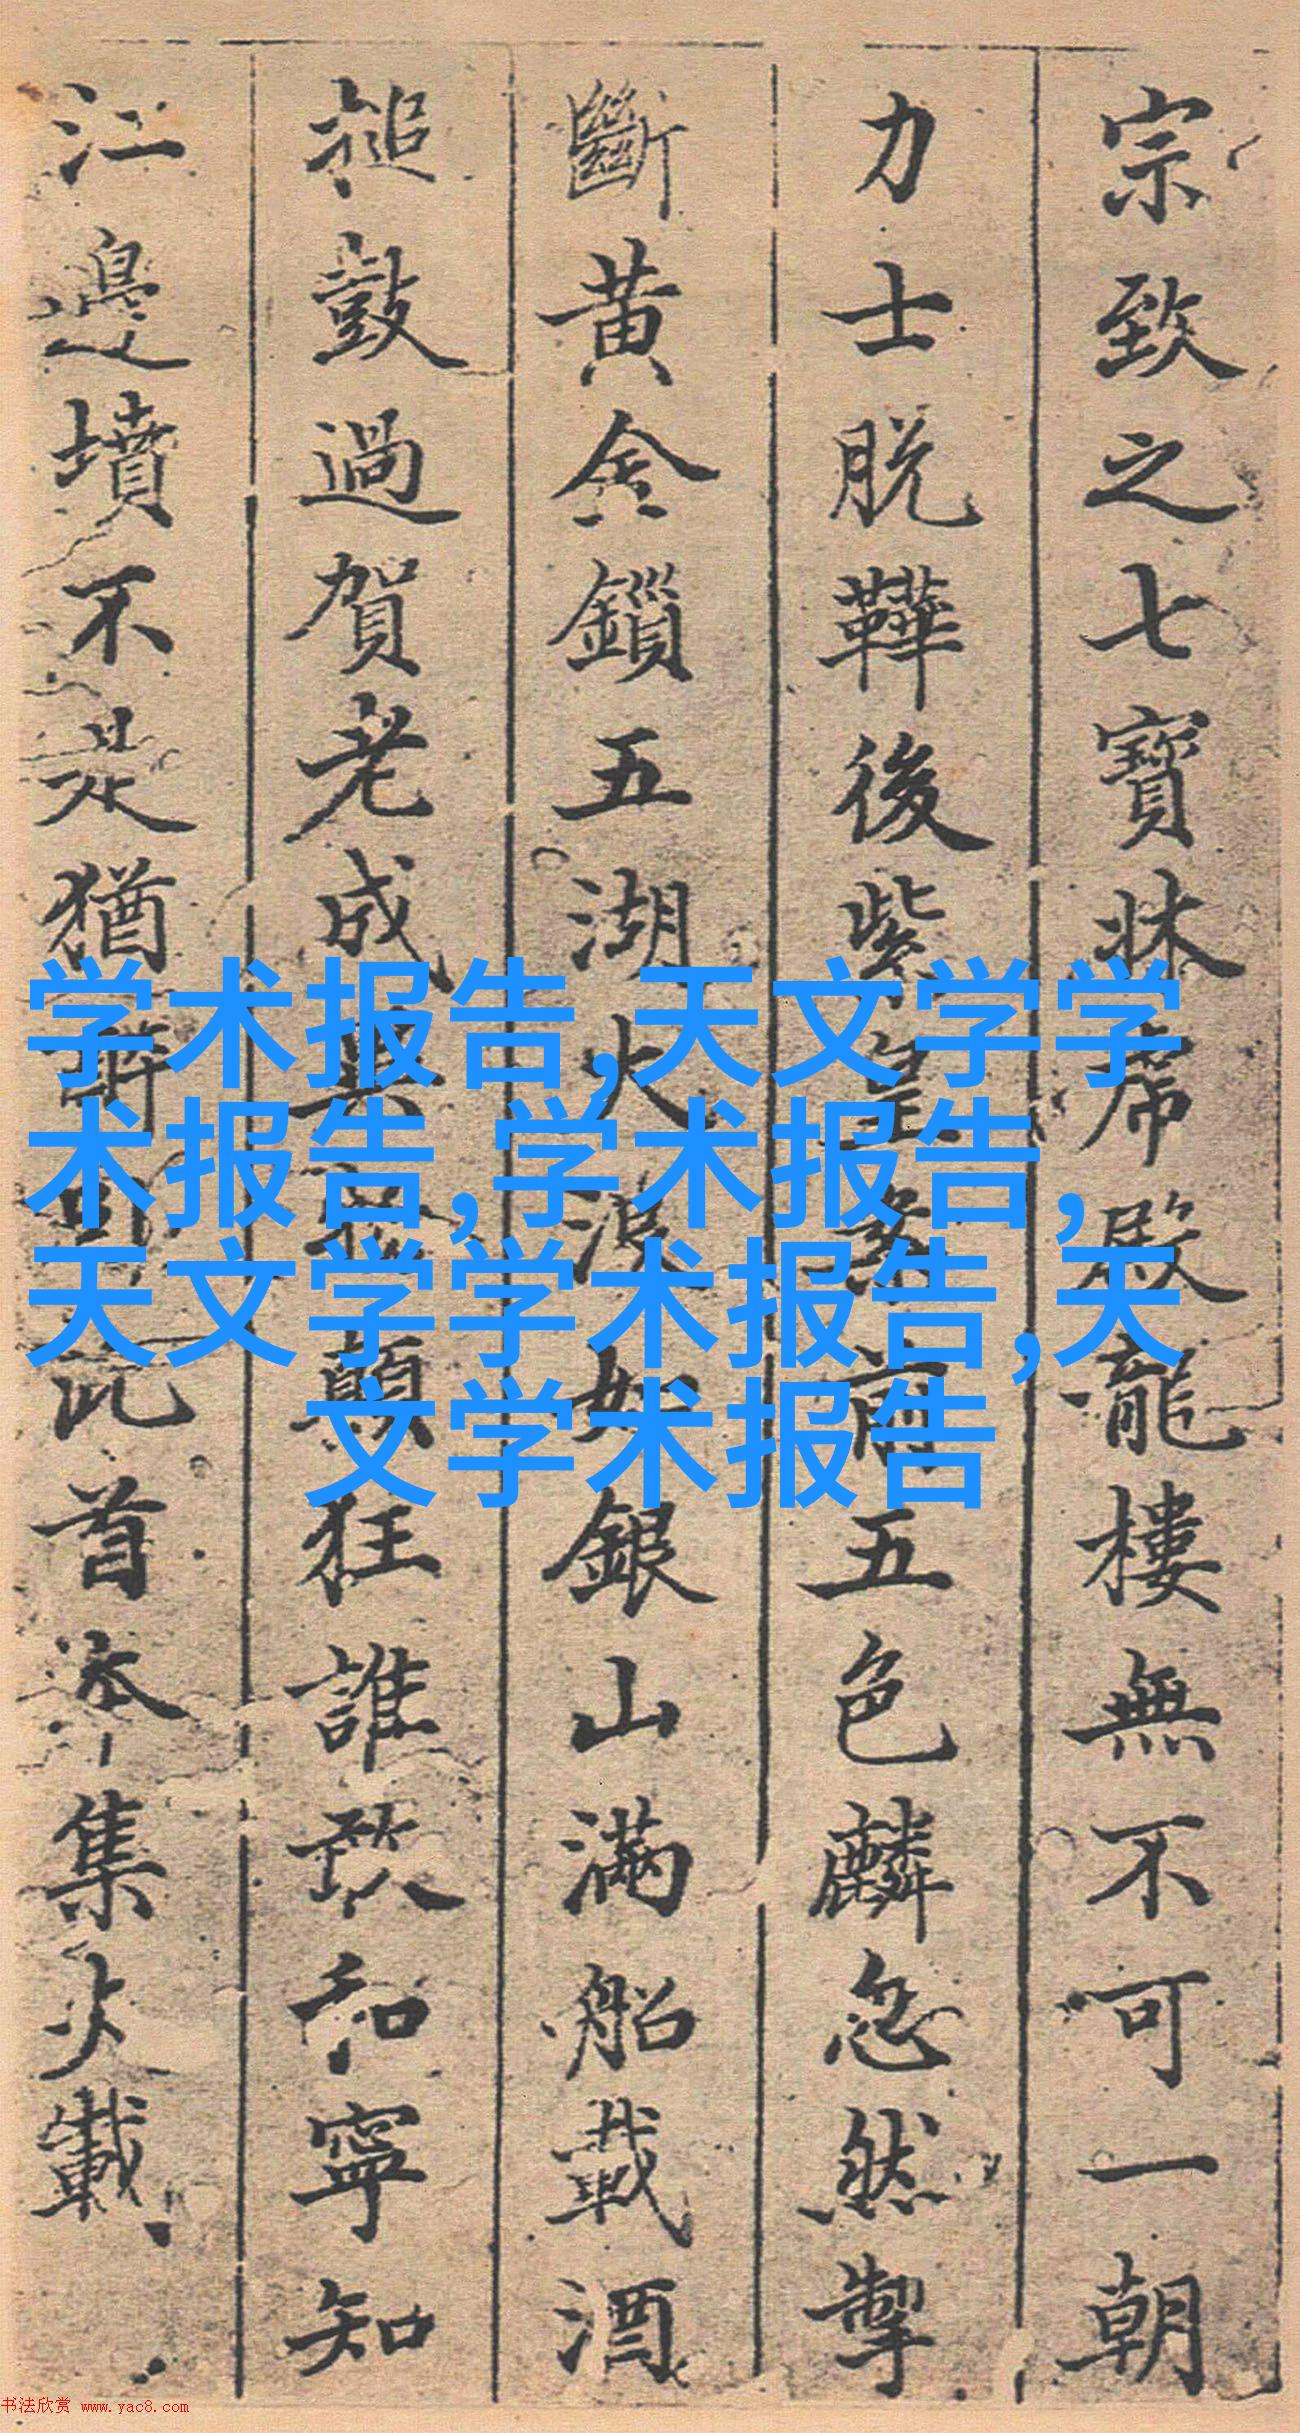 宗致之七寶牀席殿龍樓無不可一朝
力士脱鞾後紫皇案前五色麟忽然掣
斷黄金鎖五湖大浪如銀山滿船載酒
搥鼓過賀老成異物顛狂誰敢和寧知
江邊墳不是猶醉卧此首本集火載
学术报告,天文学学
术报告,学术报告,
天文学学术报告,天
文学术报告
书法欣赏 www.yac8.com